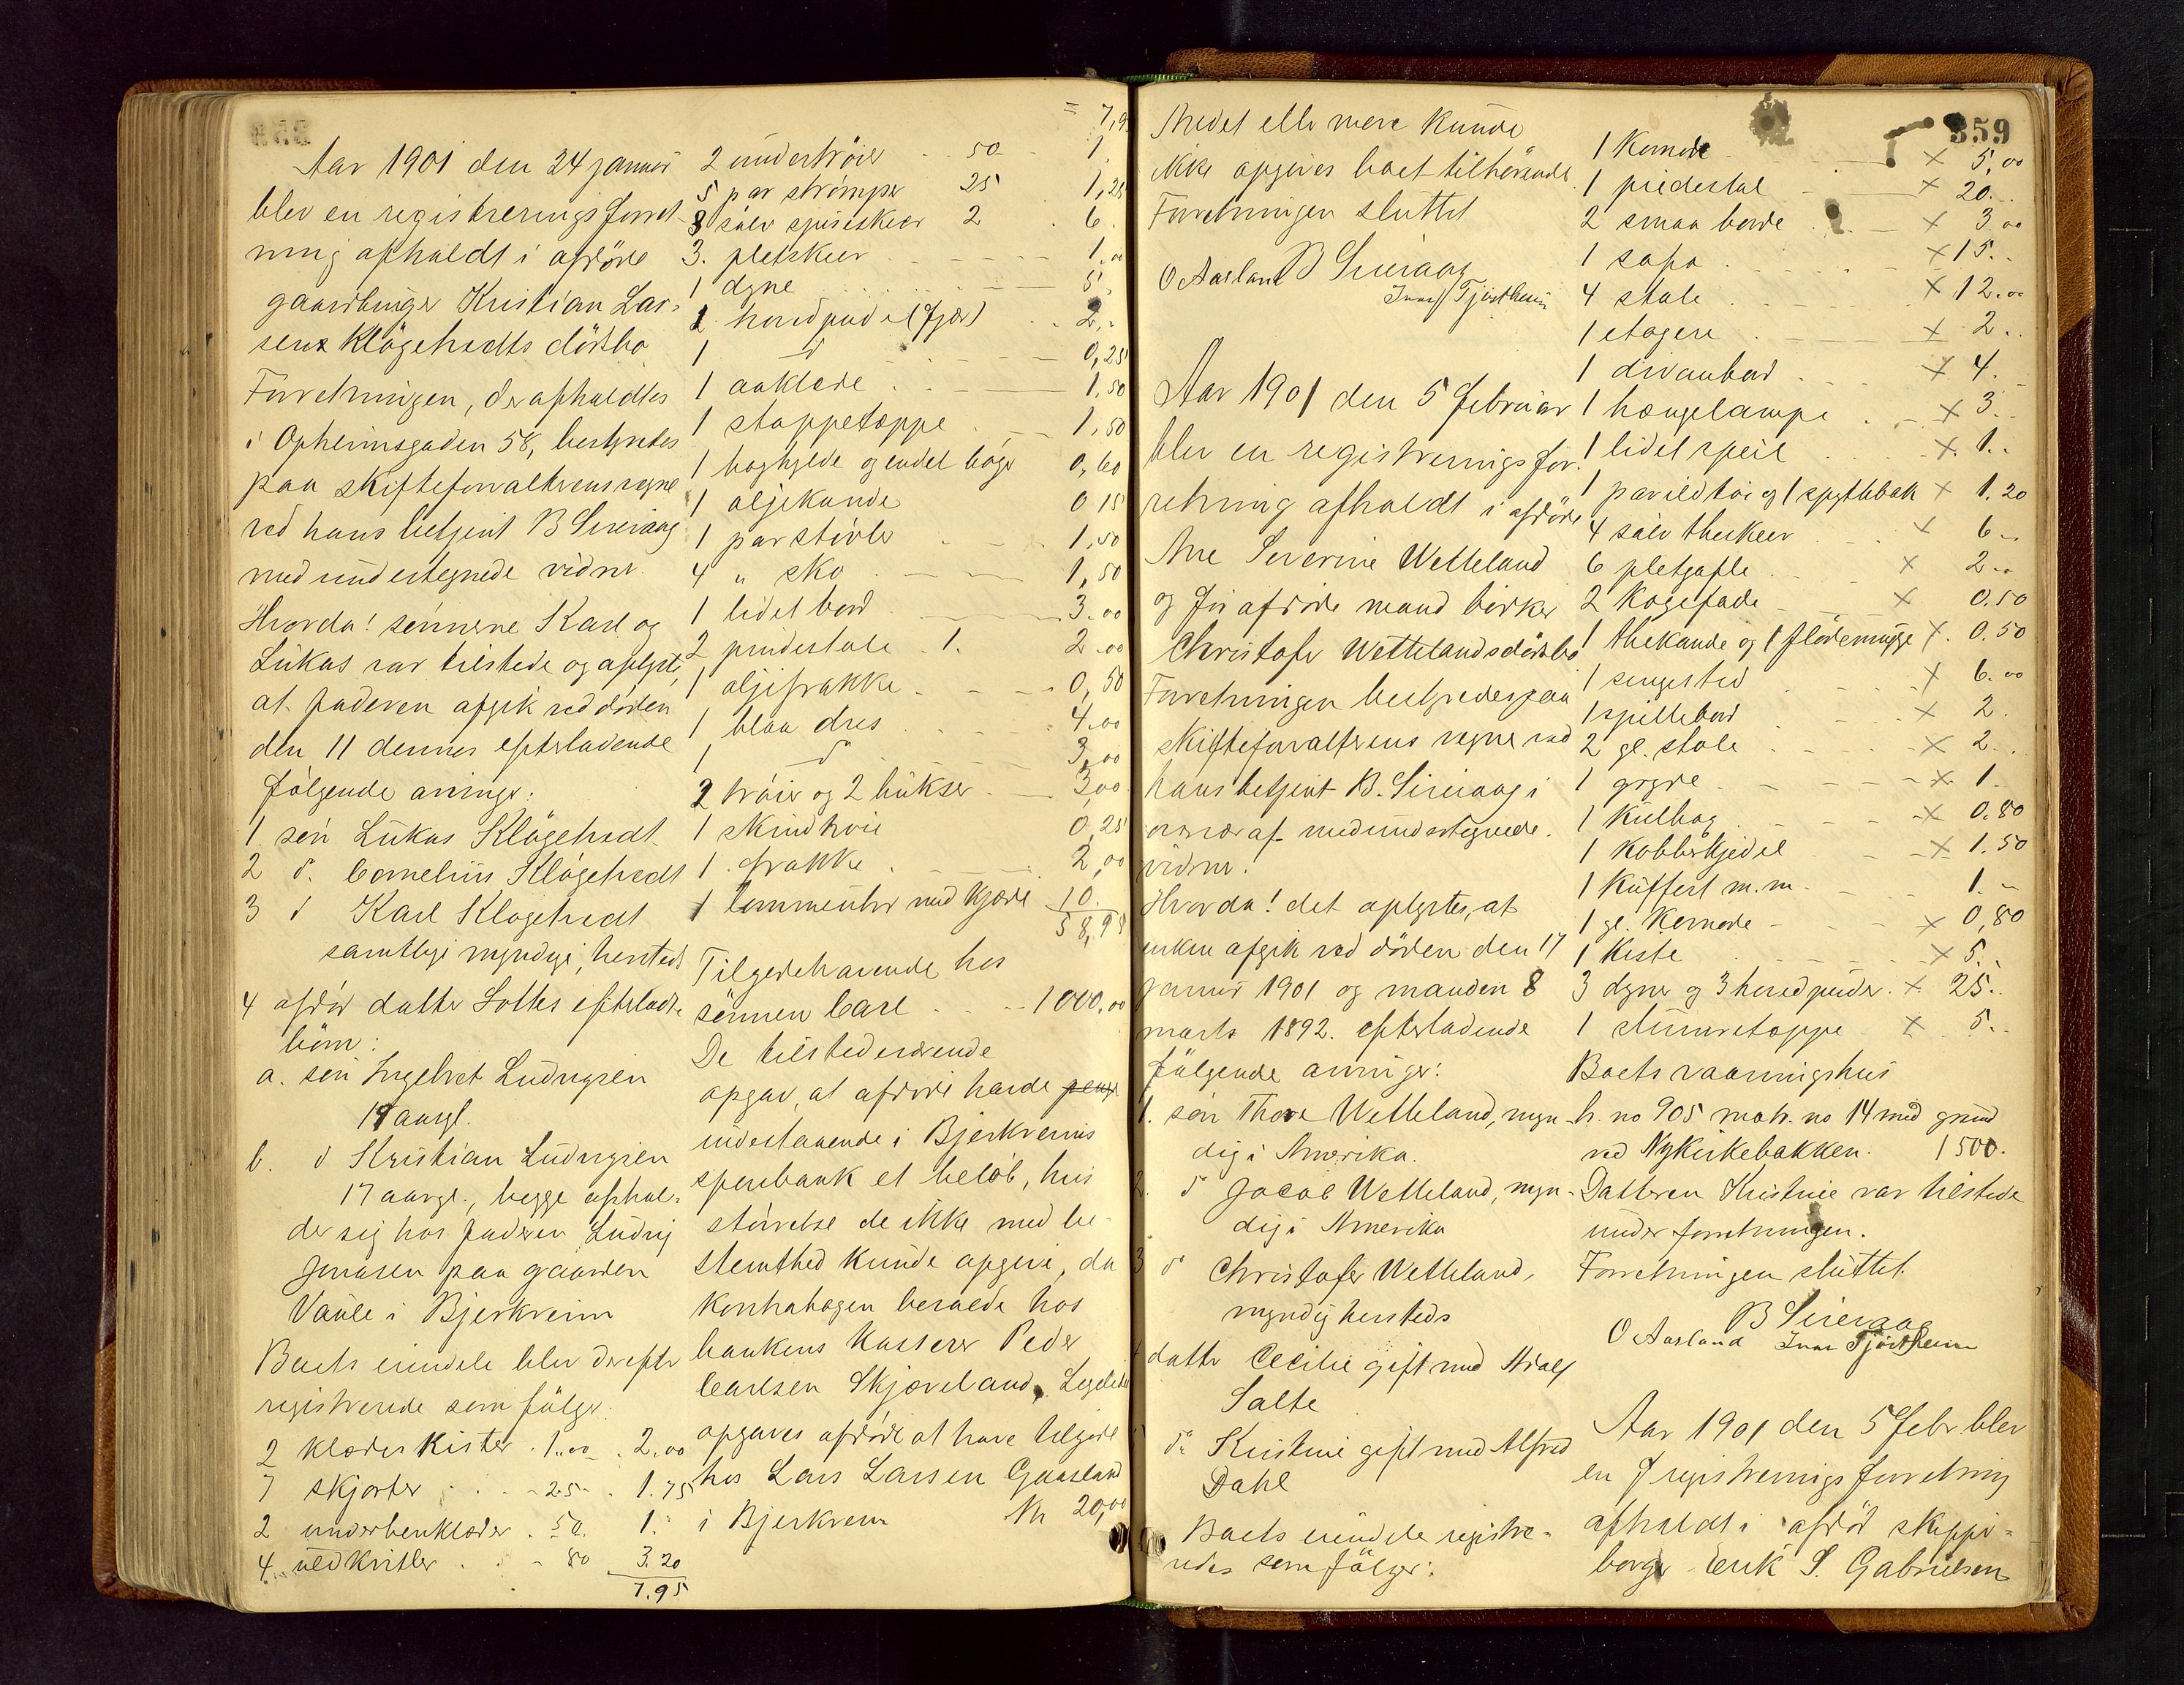 Aar 1901 den 24 januar
blev en registreringsforret-
ning afholdt i afdøde
gaardbruger Kristian Lar-
sens Kløgehedts dødsbo
Forretningen, der afholdtes
i Opheimsgaden 58, bestyredes
paa skifteforvalterens vegne
ved hans betjent B Sireraag
med undertegnede vidner.
Hvorda! sønnerne Karl og
Lukas var tilstede og oplyste,
at faderen afgik ved døden
den 11 dennes efterladende
følgende arvinger:
1. søn Lukas Kløgehedt
2 d. Cornelius Kløgehedt
3 d Karl Kløgehedt
samtlige myndige, hersteds
4 afdød datter Lottes efterladte
børn:
a. søn Ingebret Ludvigsen
19 aargl.
b. d Kristian Ludvigsen
17 aargl., begge ophol-
der sig hos faderen Ludvig
Jonasen paa gaarden
Vaule i Bjerkreim
Boets eiendele blev derefter
registrerede som følger:
2 klædeskister . 1.00 . 2.00
7 skjorter . . 25 . 1.75
2 underbenklæder . 50. 1.
4 uldkvitler . . 80 3.20
7.95
= 7,95
2 undertrøier . . 50 . 1
5 par strømper 25 1,25
3 sølv spiseskeer 2 . 6.
3. pletskeer 1.00
1 dyne 5.
2 hovedpude (Fjær) . . 2.
1 d 0,25
1 aaklæde 1,50
1 stoppetæppe 1,50
1 boghylde og endel bøger 0,60
1 oljekande 0 15
1 par støvler 1,50
4 " sko 1,50
1 lidet bord 3.00
2 pindestole . 1. 2.00
1 oljefrakke 0,50
1 blaa dres 4.00
1 d 3,00
2 trøier og 2 bukser 3,00
1 skindtrøie 0,25
1 frakke 2,00
1 lommeuhr med kjæde 10.
58,95
Tilgodehavende hos
sønnen Carl . . 1000.00
De tilstedeværende
opgav, at afdøde havde penge
indestaaende i Bjerkreims
sparebank et beløb, hvis
størrelse de ikke med be-
stemthed kunde opgive, da
kontrabogen beroede hos
bankens kasserer Peder
Carlsen Skjæveland. Ligeledes
opgaves afdøde at have tilgode
hos Lars Larsen Gaasland
i Bjerkreim Kr 20,00
359
Andet eller mere kunde
ikke opgives boet tilhørende.
Forretningen sluttet
B Sireraag
O Aasland Ivar Tjøstheim
Aar 1901 den 5 februar
blev en registreringsfor-
retning afholdt i afdøde
Ane Severine Wetteland
og før afdøde mand
Christofer Wettelands dødsbo
Forretningen bestyredes paa
skifteforvalterens vegne ved
hans betjent B. Sireraag i
overvær af medundertegnede
vidner.
Hvorda! det oplystes, at
enken afgik ved døden den 17
januar 1901 og manden 8
marts 1892. efterladende
følgende arvinger:
1. søn Thore Wetteland, myn-
dig i Amerika.
2. d Jacob Wetteland, myn-
dig i Amerika
3 d Christofer Wetteland,
myndig hersteds
4 datter Cecilie gift med
Salte
d. Kristine gift med Alfred
Dahl
Boets eiendele registre-
redes som følger:
1 Komode x 5,00
1 piedestal x 20..
2 smaa borde x 3.00
1 sofa x 15..
4 stole x 12.00
1 etagere x 2..
1 divanbord x 4.
1 hængelampe x 3..
1 lidet speil x 1..
1 par ildtøi og 1 spyttebak x 1.20
4 sølv theskeer x 6..
6 pletgafle x 2..
2 Kagefade x 0.50
1 thekande og 1 flødemugge x. 0.50
1 sengested x 6.00
1 spillebord x 2.
2 gl. stole x 2..
1 gryde x 1.
1 kulbox x 0.80
1 kobberkjedel x 1.50
1 Kuffert m.m. 1.
1 gl. Komode x 0,80
1 kiste x 5..
3 dyner og 3 hovedpuder. x 25..
1 stuevetæppe x 5..
Boets vaaningshus
h. no 905 matr. no 14 med grund
ved Nykirkebakken. 1500.
Datteren Kristine var tilstede
under forretningen.
Forretningen sluttet.
B Sireraag
O Aasland Ivar Tjøstheim
Aar 1901 den 5 febr blev
en registreringsforretning
afholdt i afdød skipper-
borger Erik S. Gabrielsen